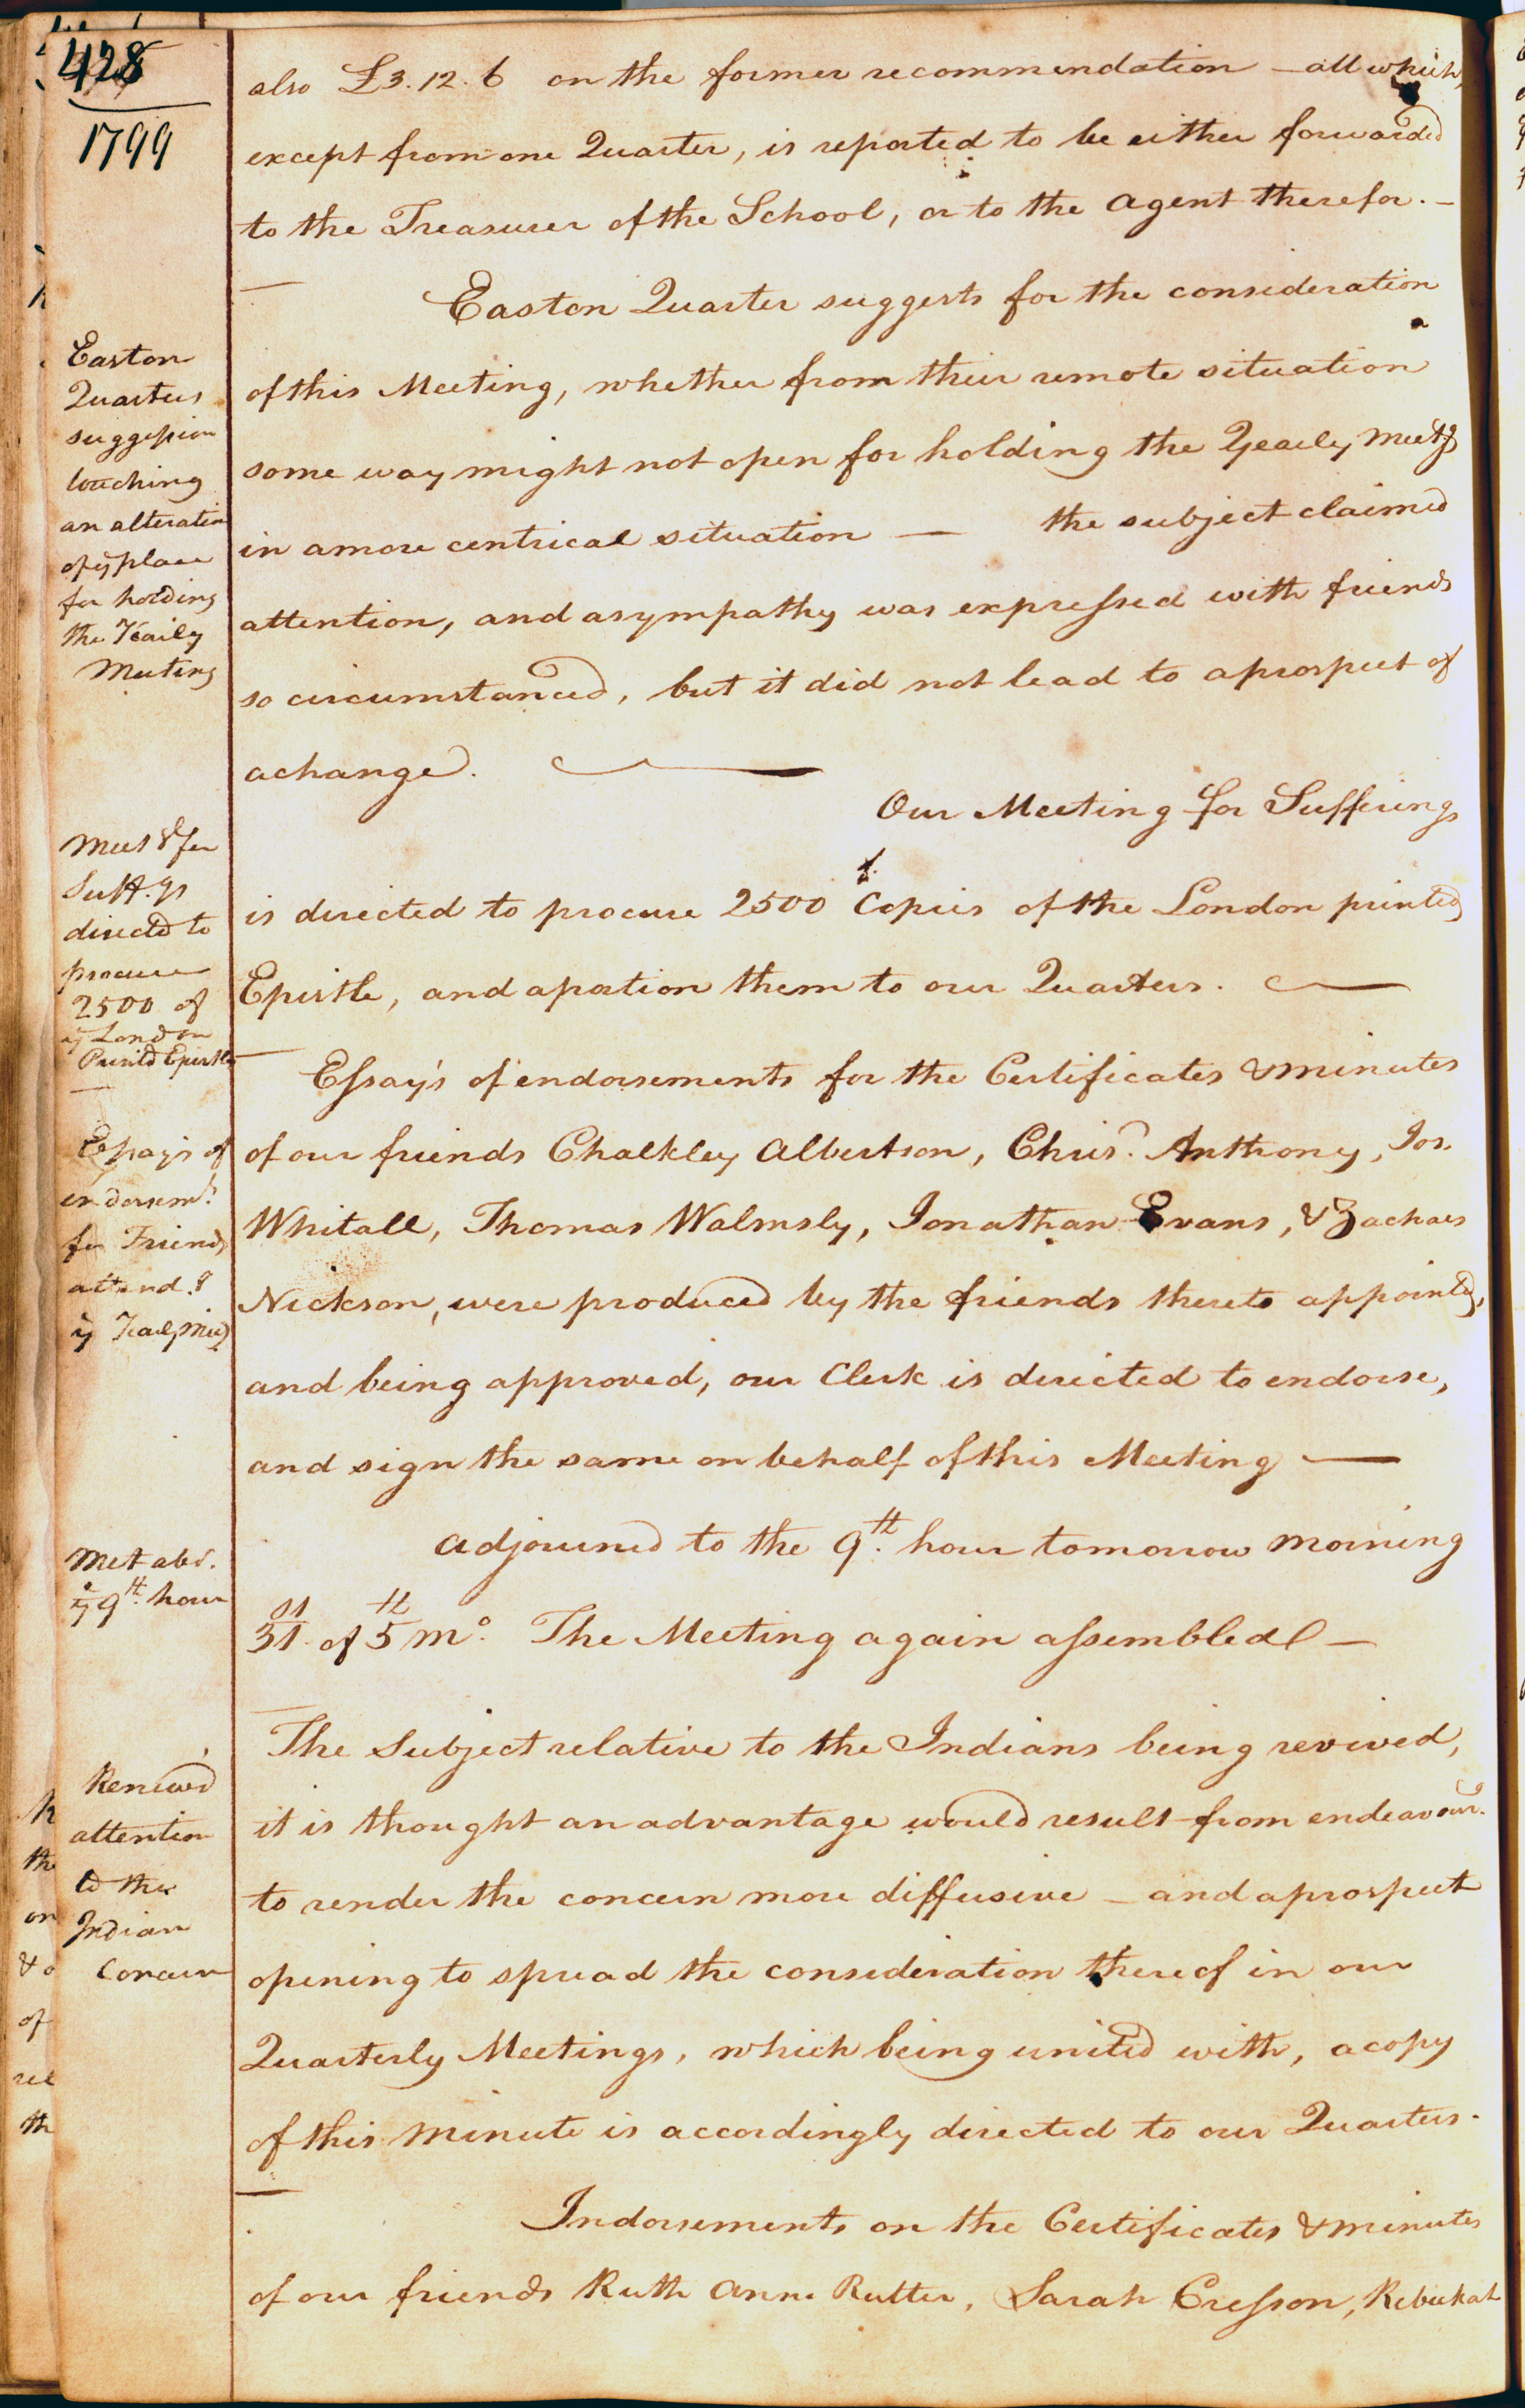 428
1799
also £3.12.6 on the former recommendation – all which,
except from one Quarter, is reported to be either forwarded
to the Treasurer of the School, or to the Agent therefor. –
Easton Quarter suggests for the consideration
of this Meeting, whether from their remote situation
some way might not open for holding the Yearly Meetg
in a more centrical situation — the subject claimed
attention, and a sympathy was expressed with friends
so circumstanced, but it did not lead to a prospect of
a change.
Easton
Quarters
suggestion
touching
an alteration
of ye place
for holding
the Yearly
Meeting
Our Meeting for Sufferings
is directed to procure 2500 Copies of the London printed
Epistle, and aportion them to our Quarters. —
Meetg for
Suff.gs
directd to
procure
2500 of
ye London
Printd Epistle
Essay's of endorsements for the Certificates & minutes
of our friends Chalkley Albertson, Chrisr. Anthony, Jos.
Whitall, Thomas Walmsly, Jonathan Evans, & Zachaes
Nickson, were produced by the friends thereto appointed,
and being approved, our Clerk is directed to endorse,
and sign the same on behalf of this Meeting —
Essay's of
endorsemts
for Friends
attendg
ye Yearly Meetg
Adjourned to the 9th. hour tomorrow morning
31st. of 5th mo. The Meeting again assembled –
Met abt.
ye 9th. hour
The Subject relative to the Indians being revived,
it is thought an advantage would result from endeavourg.
to render the concern more diffusive – and a prospect
opening to spread the consideration thereof in our
Quarterly Meetings, which being united with, a copy
of this minute is accordingly directed to our Quarters.
Renewd
attention
to the
Indian
Concern
Indorsements on the Certificates & minutes
of our friends Ruth Anna Rutter, Sarah Cresson, Rebeckah